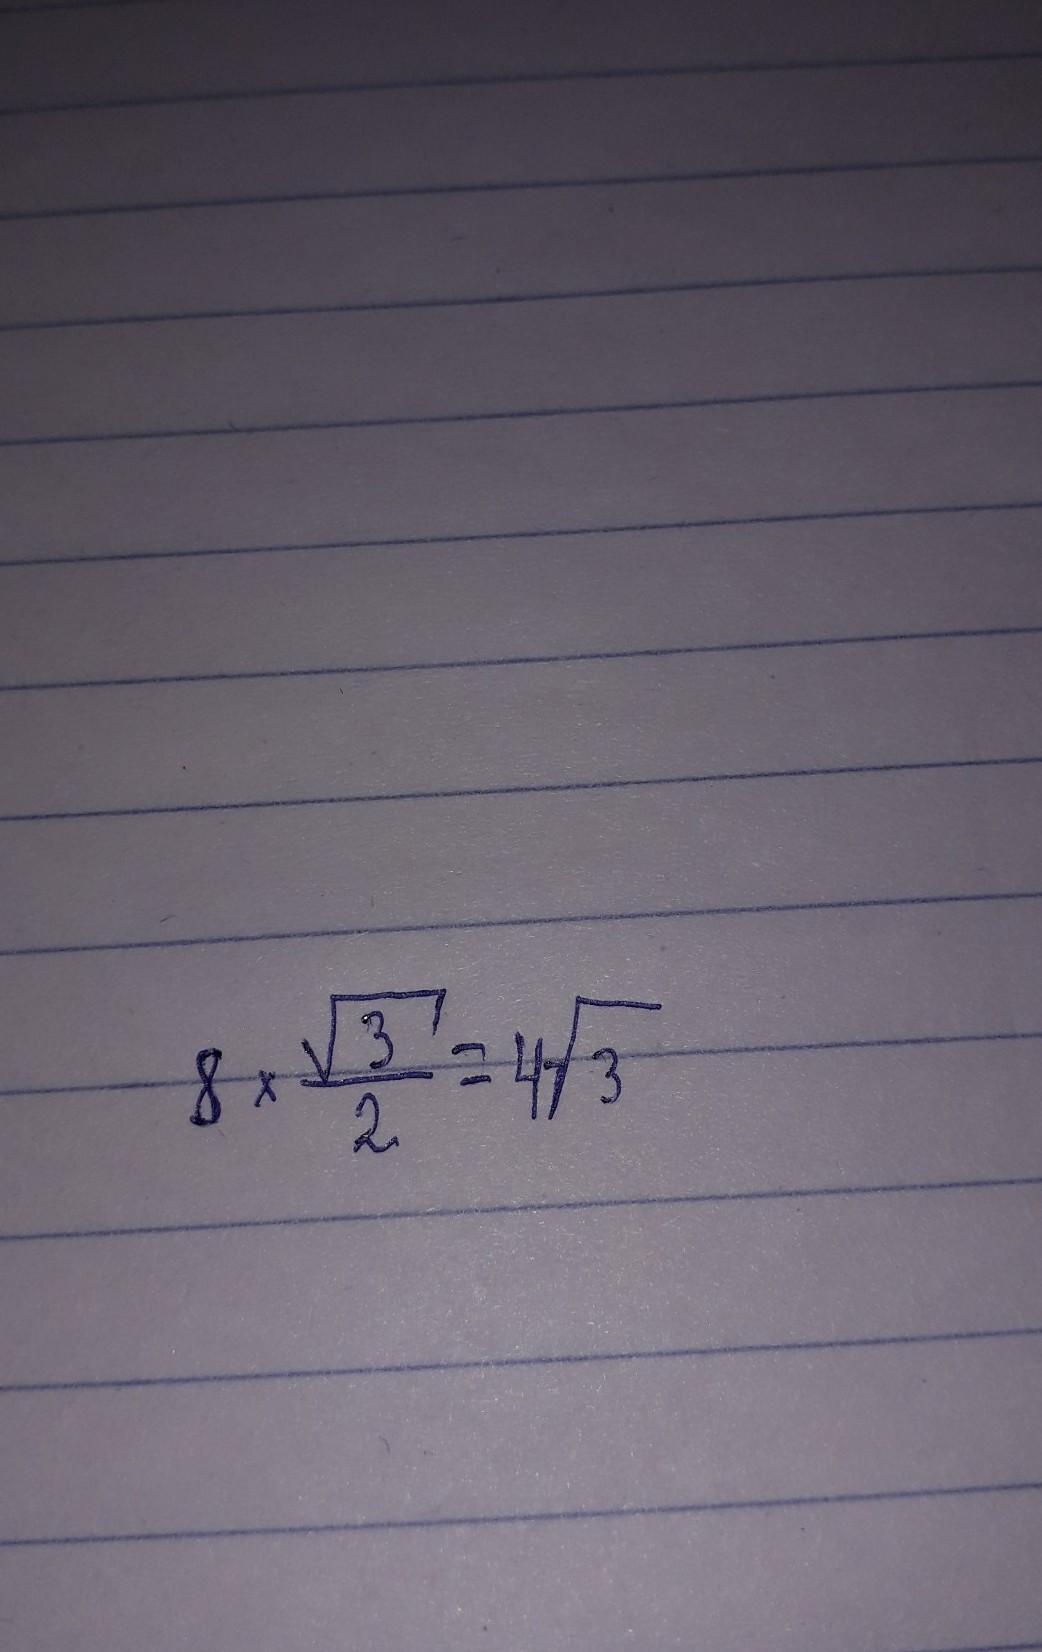 8 × √3/2 = 4√3